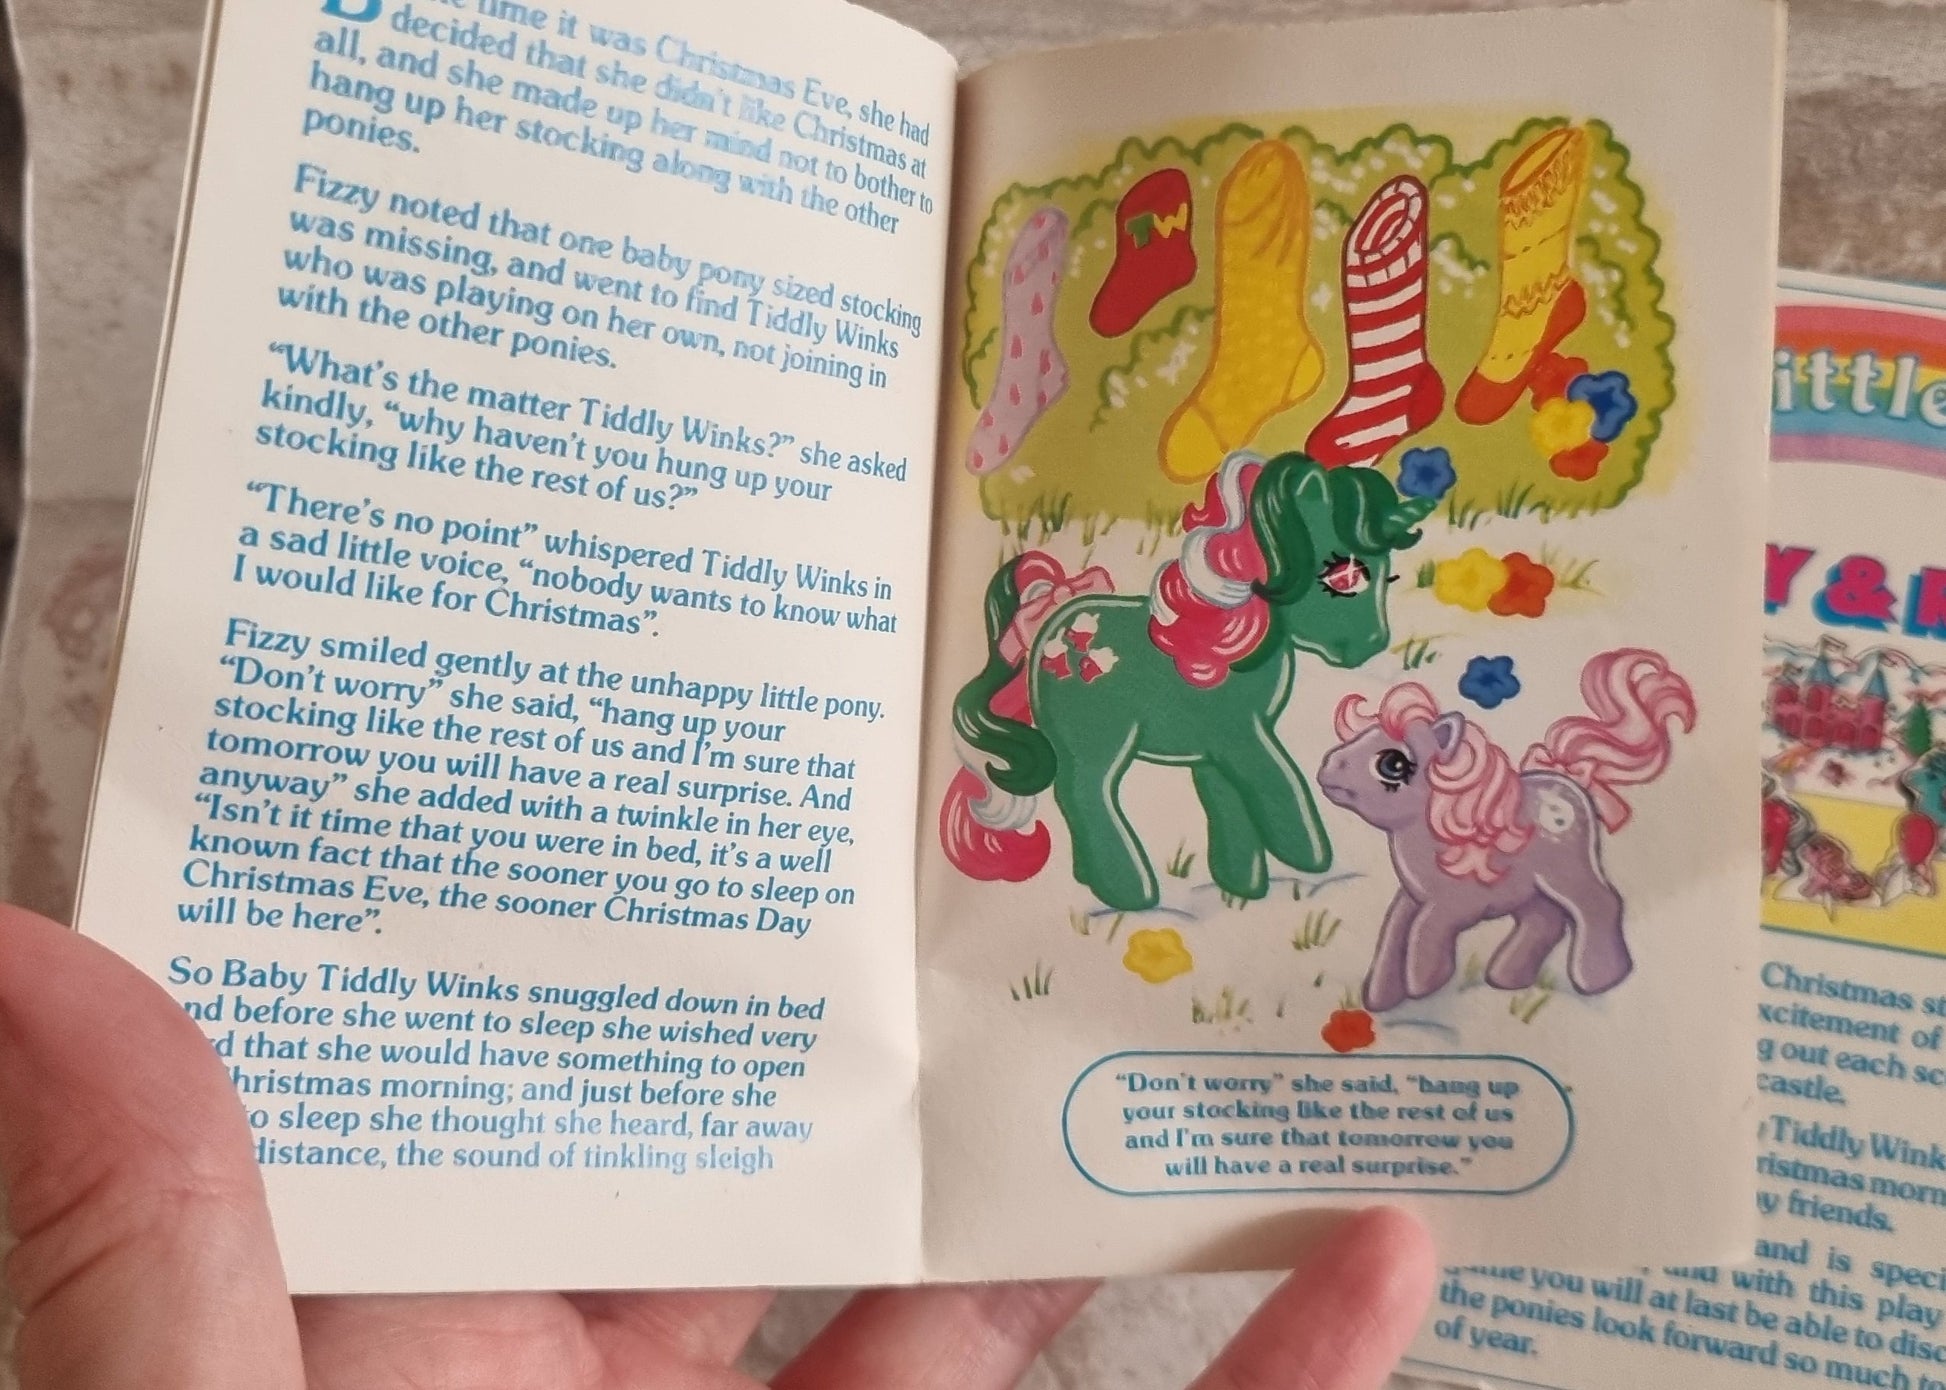 time it was Christmas Eve, she had
decided that she didn't like Christmas at
all, and she made up her mind not to bother to
hang up her stocking along with the other
ponies.
Fizzy noted that one baby pony sized stocking
was missing, and went to find Tiddly Winks
who was playing on her own, not joining in
with the other ponies.
“What's the matter Tiddly Winks?” she asked
kindly, “why haven't you hung up your
stocking like the rest of us?”
“There's no point” whispered Tiddly Winks in
a sad little voice, “nobody wants to know what
I would like for Christmas”.
Fizzy smiled gently at the unhappy little pony.
“Don't worry” she said, “hang up your
stocking like the rest of us and I'm sure that
tomorrow you will have a real surprise. And
anyway” she added with a twinkle in her eye,
“Isn't it time that you were in bed, it's a well
known fact that the sooner you go to sleep on
Christmas Eve, the sooner Christmas Day
will be here”.
So Baby Tiddly Winks snuggled down in bed
nd before she went to sleep she wished very
d that she would have something to open
hristmas morning; and just before she
to sleep she thought she heard, far away
distance, the sound of tinkling sleigh
TW
“Don't worry” she said, “hang up
your stocking like the rest of us
and I'm sure that tomorrow you
will have a real surprise.”
ittle
Y & R
Christmas st
xcitement of
g out each sc
castle.
Tiddly Wink
ristmas morn
y friends.
and is speci
and with this play
you will at last be able to disc
the ponies look forward so much to
of year.